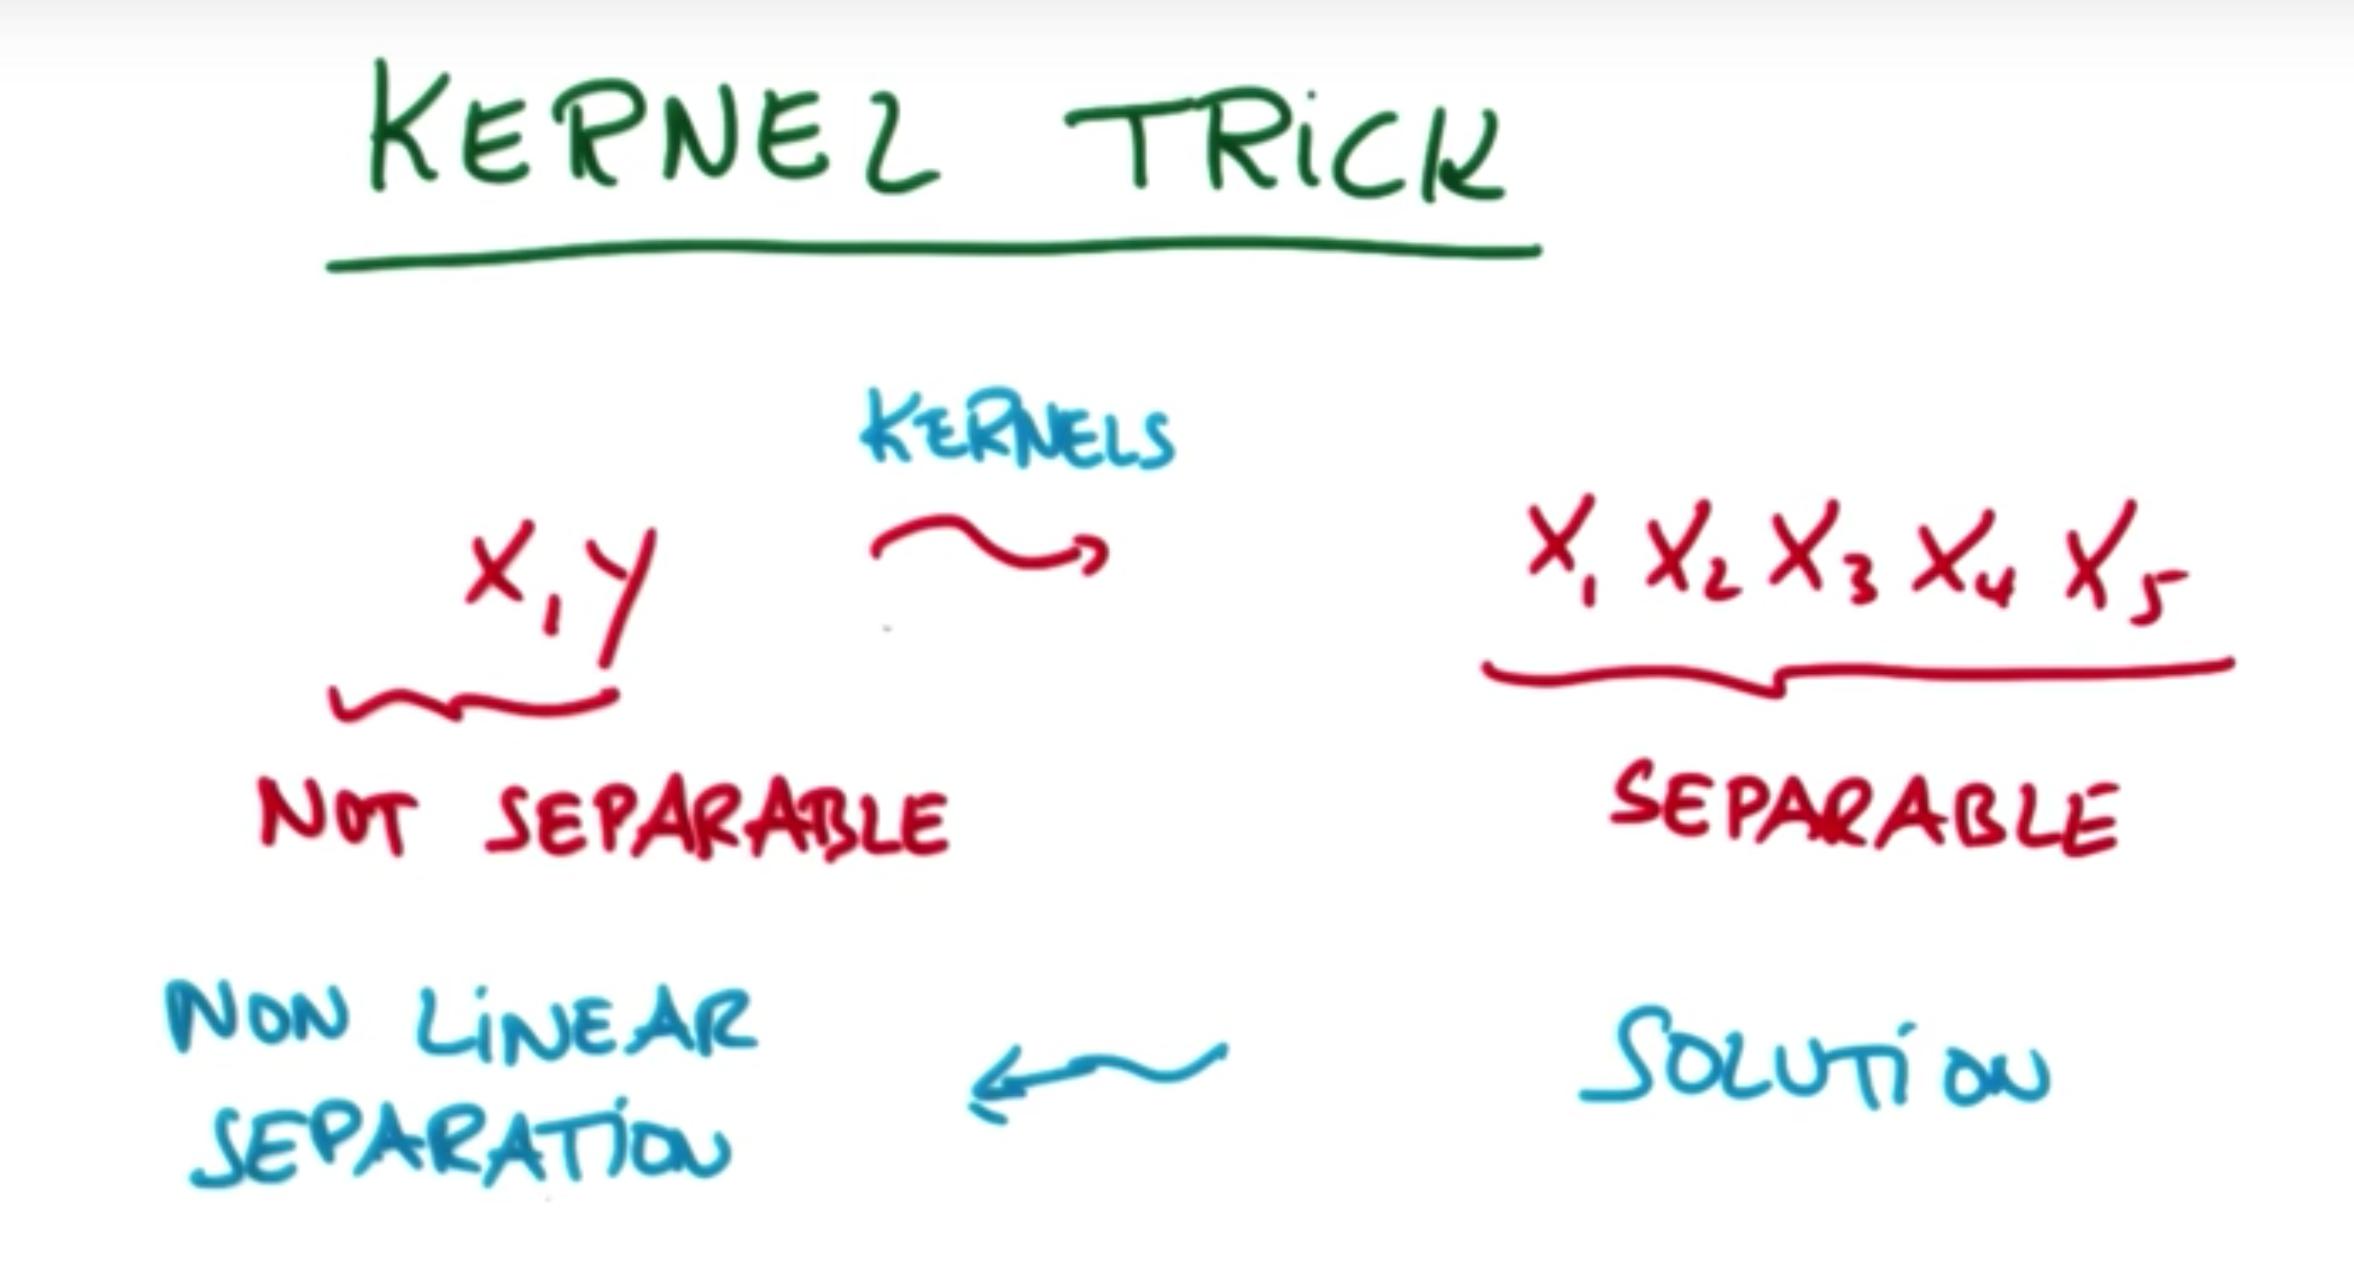 KERNEL TRiCK
KERNELS
X,Y
X₁ X₂ X₃ X₄ X₅
NOT SEPARABLE
SEPARABLE
NON LiNEAR
SEPARATiON
SOLUTiON